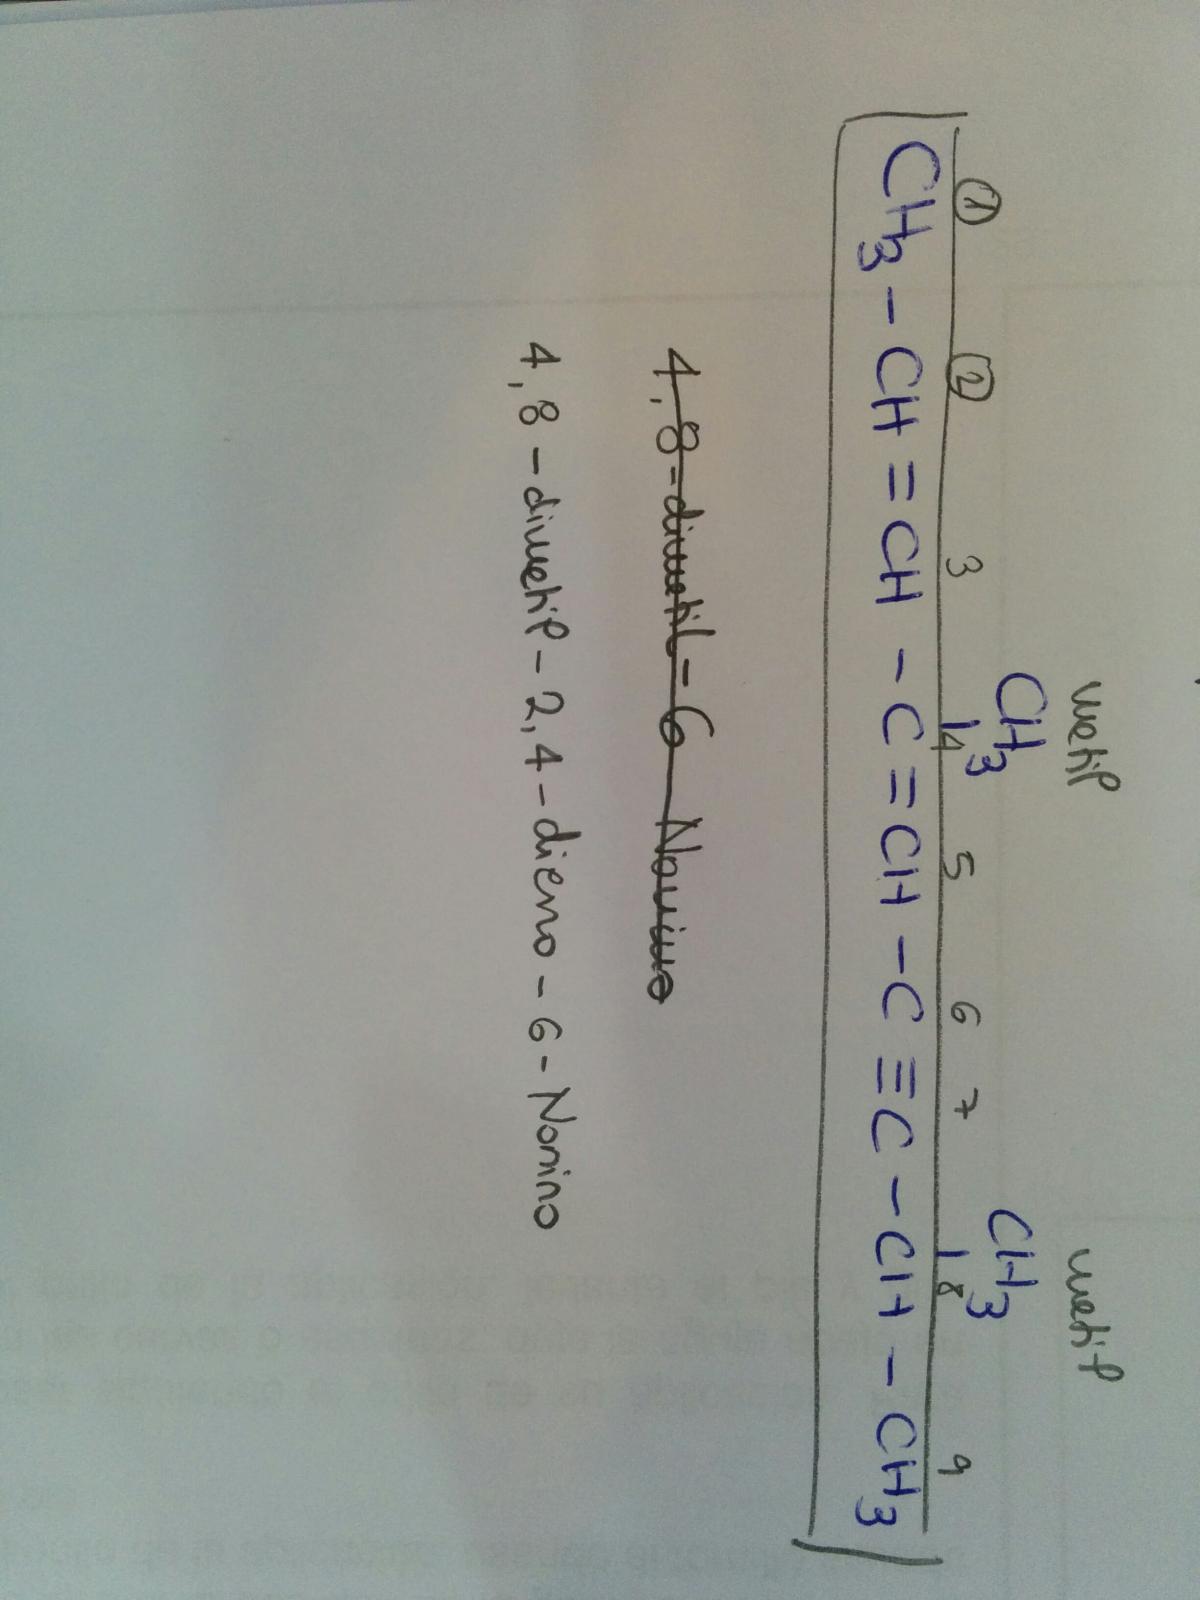 metil metil
CH3 CH3
① ② 3 4 5 6 7 8 9
CH3 – CH = CH – C = CH – C ≡ C – CH – CH3
4,8-dimetil-6 Nonino
4,8-dimetil-2,4-dieno-6-Nonino